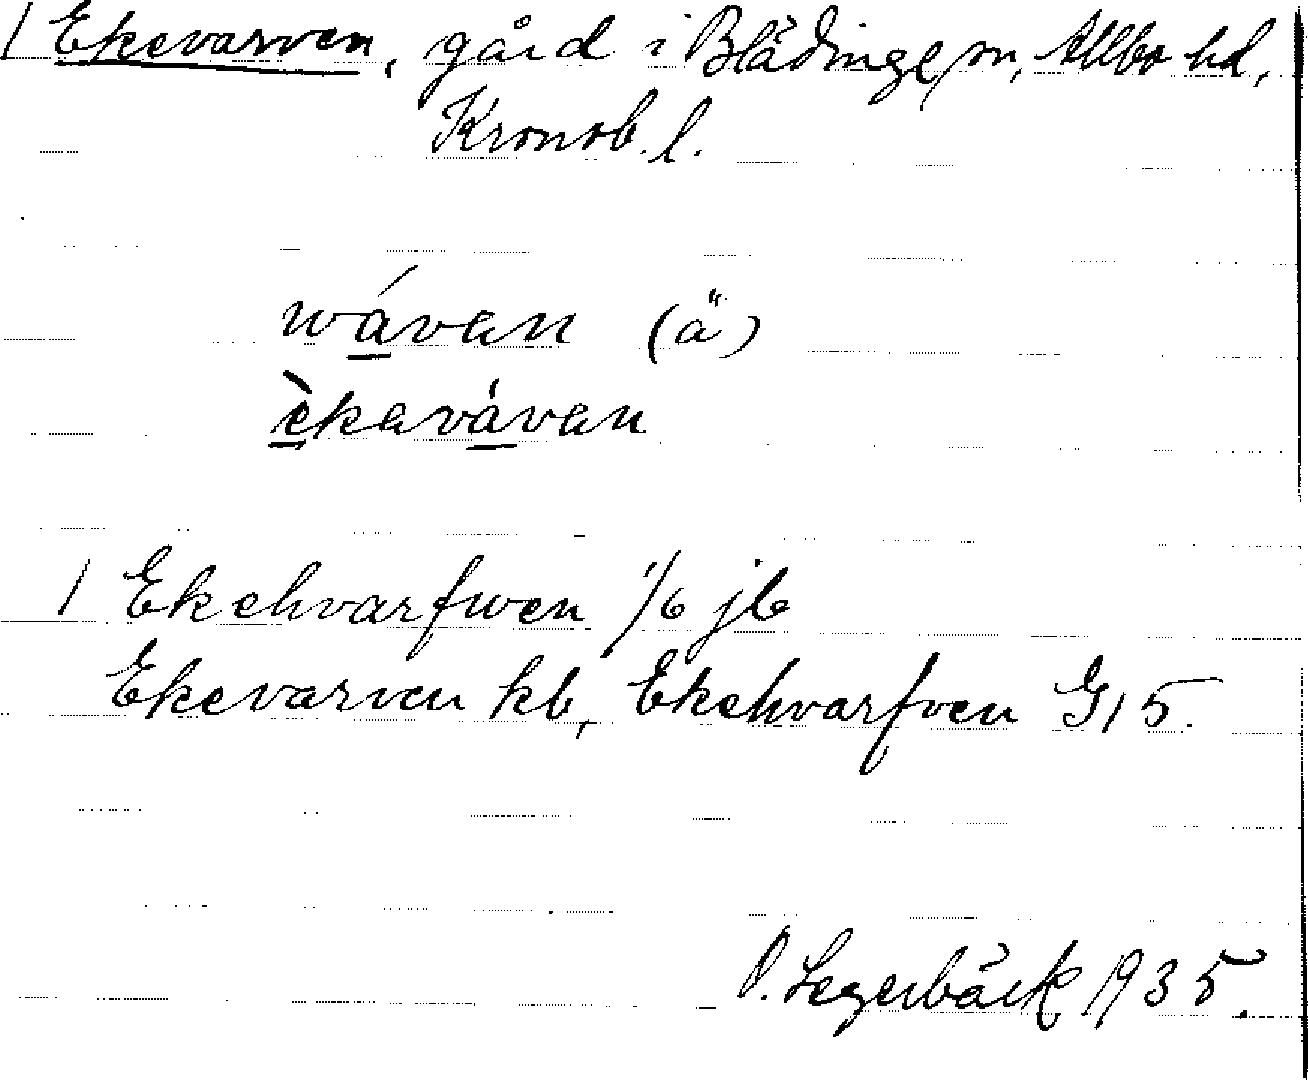 / Ekevarven, gård i Blädinge sn, Allbo hd,
Kronob. l.
wávan (ä)
èkavávan
/ Ekehvarfwen 1/6 jb
Ekevarven kb, Ekehvarfven G15.
O. Segerbäck 1935.